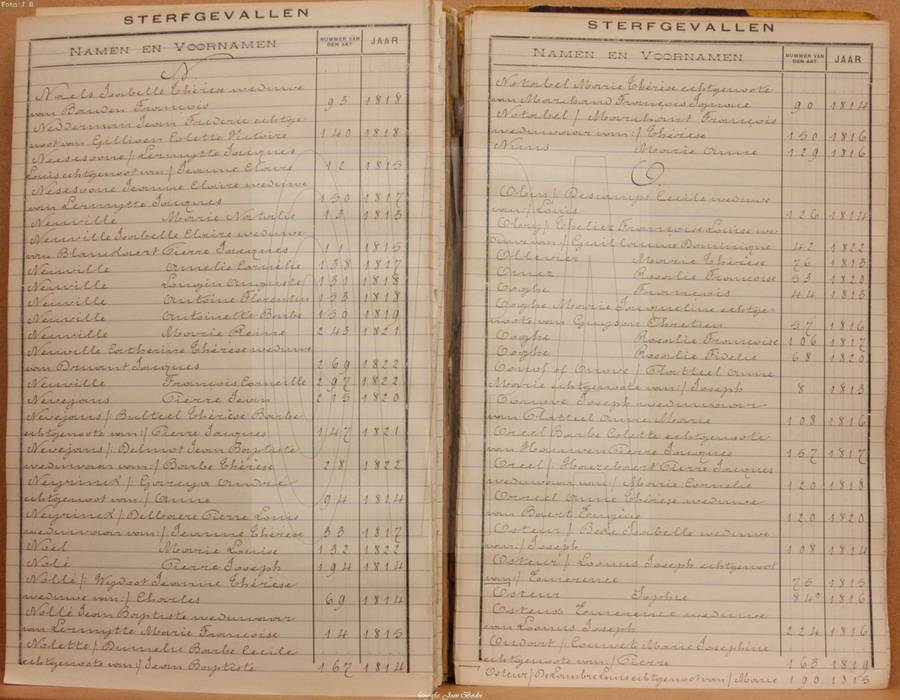 Foto: J. B.
STERFGEVALLEN
NAMEN EN VOORNAMEN NUMMER VAN DEN AKT JAAR
N
Naels Isabelle Thérèse weduwe
van Bauden François 93 1818
Nedderman Jean Frederic echtge-
noot van Gillioen Colette Victoire 140 1818
Neesesoone / Lermytte Jacques
Louis echtgenoot van / Jeanne Claire 12 1815
Nesesoone Jeanne Claire weduwe
van Lermytte Jacques 150 1817
Neuville Marie Natalie 13 1813
Neuville Isabelle Claire weduwe
van Blanckaert Pierre Jacques 11 1815
Neuville Amelie Cornélie 138 1817
Neuville Longin Auguste 131 1818
Neuville Antoine Florentin 133 1818
Neuville Antoinette Barbe 150 1819
Neuville Marie Reine 243 1821
Neuville Catherine Thérèse weduwe
van Druant Jacques 269 1822
Neuville François Corneille 297 1822
Nevejans Pierre Jean 215 1820
Nevejans / Bulteel Thérèse Barbe
echtgenoote van / Pierre Jacques 147 1821
Nevejans / Delmot Jean Baptiste
weduwaar van / Barbe Thérèse 28 1822
Neyrinck / Gareyn André
echtgenoot van / Anne 94 1814
Neyrinck / Delbaere Pierre Louis
weduwaar van / Jeanne Thérèse 33 1817
Noël Marie Louise 132 1822
Nolé Pierre Joseph 194 1814
Nollé / Wydoot Jeanne Thérèse
weduwe van / Charles 69 1814
Nollé Jean Baptiste weduwaar
van Lermytte Marie Françoise 14 1815
Nolette / Dumelie Barbe Cecile
echtgenoote van / Jean Baptiste 167 1814
STERFGEVALLEN
NAMEN EN VOORNAMEN NUMMER VAN DEN AKT JAAR
Notabel Marie Thérèse echtgenoote
van Marchand François Ignace 90 1814
Notabel / Marchant François
weduwaar van / Thérèse 150 1816
Nuns Marie Anne 129 1816
O.
Olen / Descamps Cecile weduwe
van / Louis 126 1814
Olory / Thelier Françoise Louise we-
duwe van / Guillaume Dominique 42 1822
Ollevier Marie Thérèse 76 1813
Omez Rosalie Françoise 53 1820
Ooghe François 44 1813
Ooghe Marie Jacqueline echtge-
noote van Guyson Chretien 57 1816
Ooghe Rosalie Françoise 106 1817
Ooghe Rosalie Fidelie 68 1820
Oonof of Onove / Platteel Anne
Marie echtgenoote van / Joseph 8 1813
Oonove Joseph weduwaar
van Platteel Anne Marie 108 1816
Oreel Barbe Colette echtgenoote
van Hauwen Pierre Jacques 157 1817
Oreel / Hazebaert Pierre Jacques
weduwaar van / Marie Cornelie 120 1818
Orneel Anne Thérèse weduwe
van Baert Eugène 120 1820
Osteur / Bele Isabelle weduwe
van / Joseph 108 1814
Osteur / Loonus Joseph echtgenoot
van / Emerence 75 1815
Osteur Sophie 84 1816
Osteux Emerence weduwe
van Loonus Joseph 224 1816
Oudart / Couvet Marie Josephine
echtgenoote van / Pierre 163 1819
Osteur / De Lambre Louis echtgenoot van / Marie 190 1815